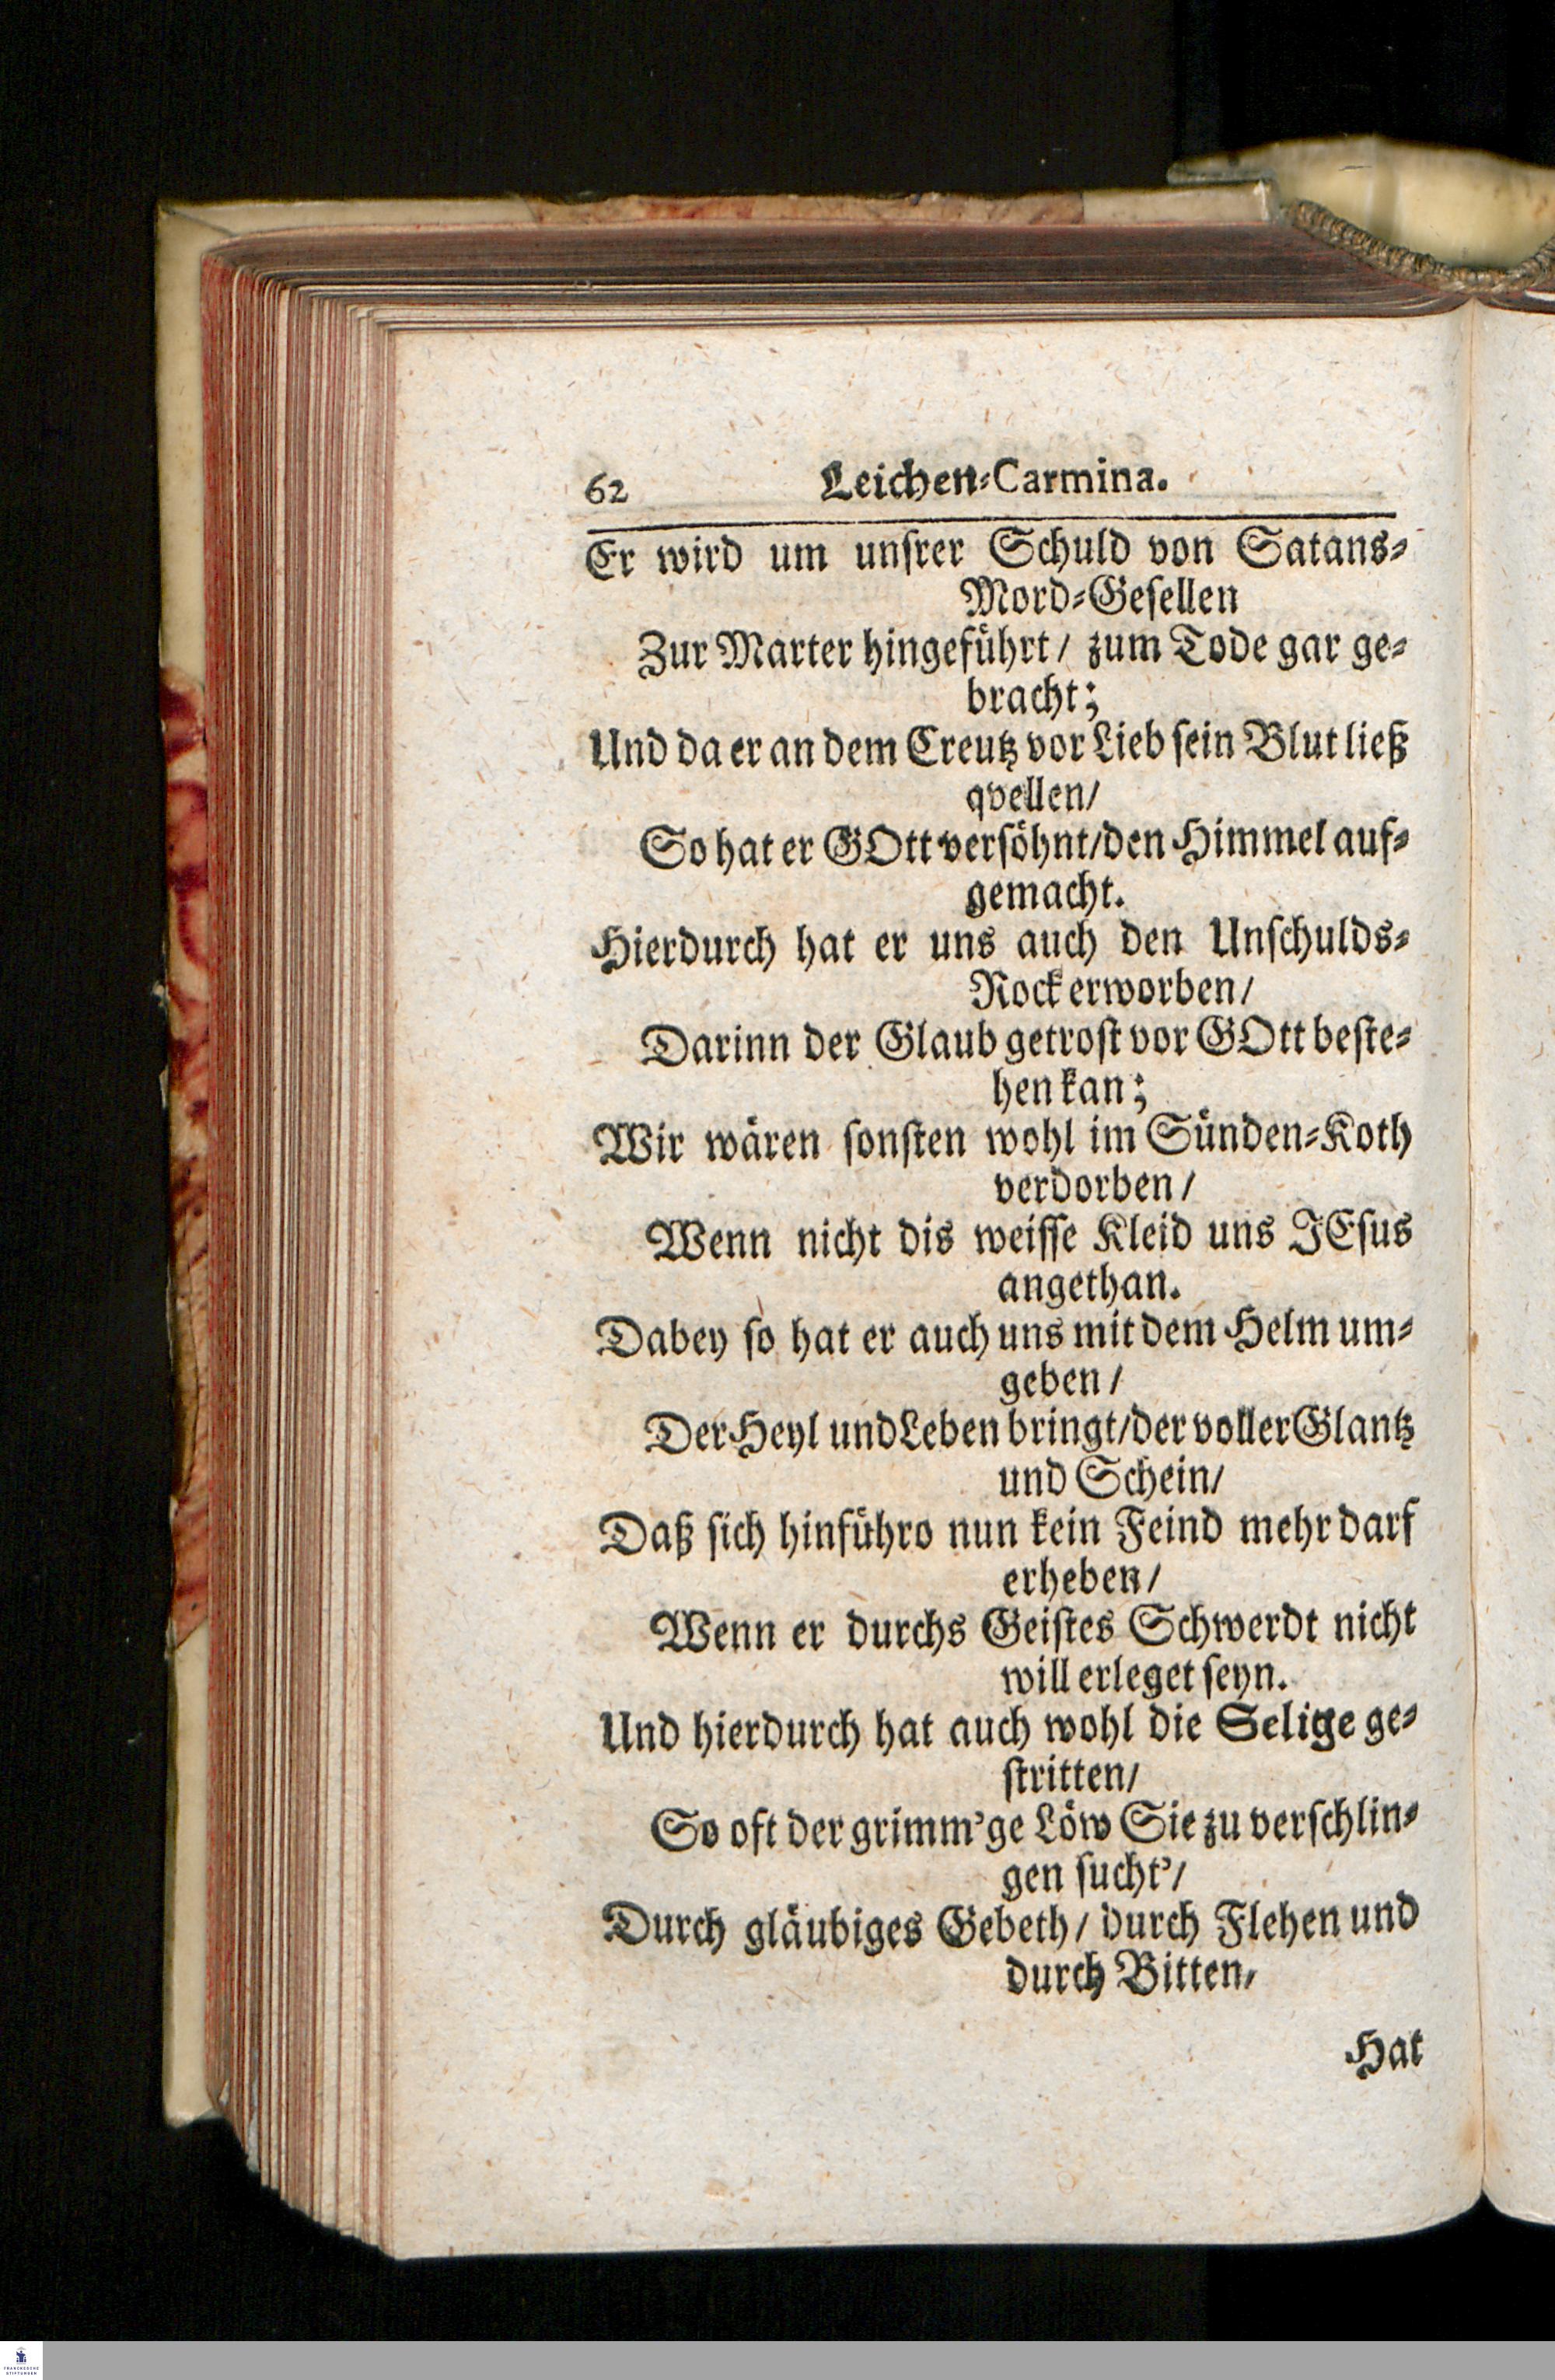 62 Leichen-Carmina.
Er wird um unſrer Schuld von Satans-
Mord-Geſellen
Zur Marter hingeführt/ zum Tode gar ge-
bracht;
Und da er an dem Creutz vor Lieb ſein Blut ließ
qvellen/
So hat er GOtt verſöhnt/den Himmel auf-
gemacht.
Hierdurch hat er uns auch den Unſchulds-
Rock erworben/
Darinn der Glaub getroſt vor GOtt beſte-
hen kan;
Wir wären ſonſten wohl im Sünden-Koth
verdorben/
Wenn nicht dis weiſſe Kleid uns JEſus
angethan.
Dabey ſo hat er auch uns mit dem Helm um-
geben/
Der Heyl und Leben bringt/der voller Glantz
und Schein/
Daß ſich hinführo nun kein Feind mehr darf
erheben/
Wenn er durchs Geiſtes Schwerdt nicht
will erleget ſeyn.
Und hierdurch hat auch wohl die Selige ge-
ſtritten/
So oft der grimm'ge Löw Sie zu verſchlin-
gen ſucht'/
Durch gläubiges Gebeth/ durch Flehen und
durch Bitten,
Hat
FRANCKESCHE
STIFTUNGEN